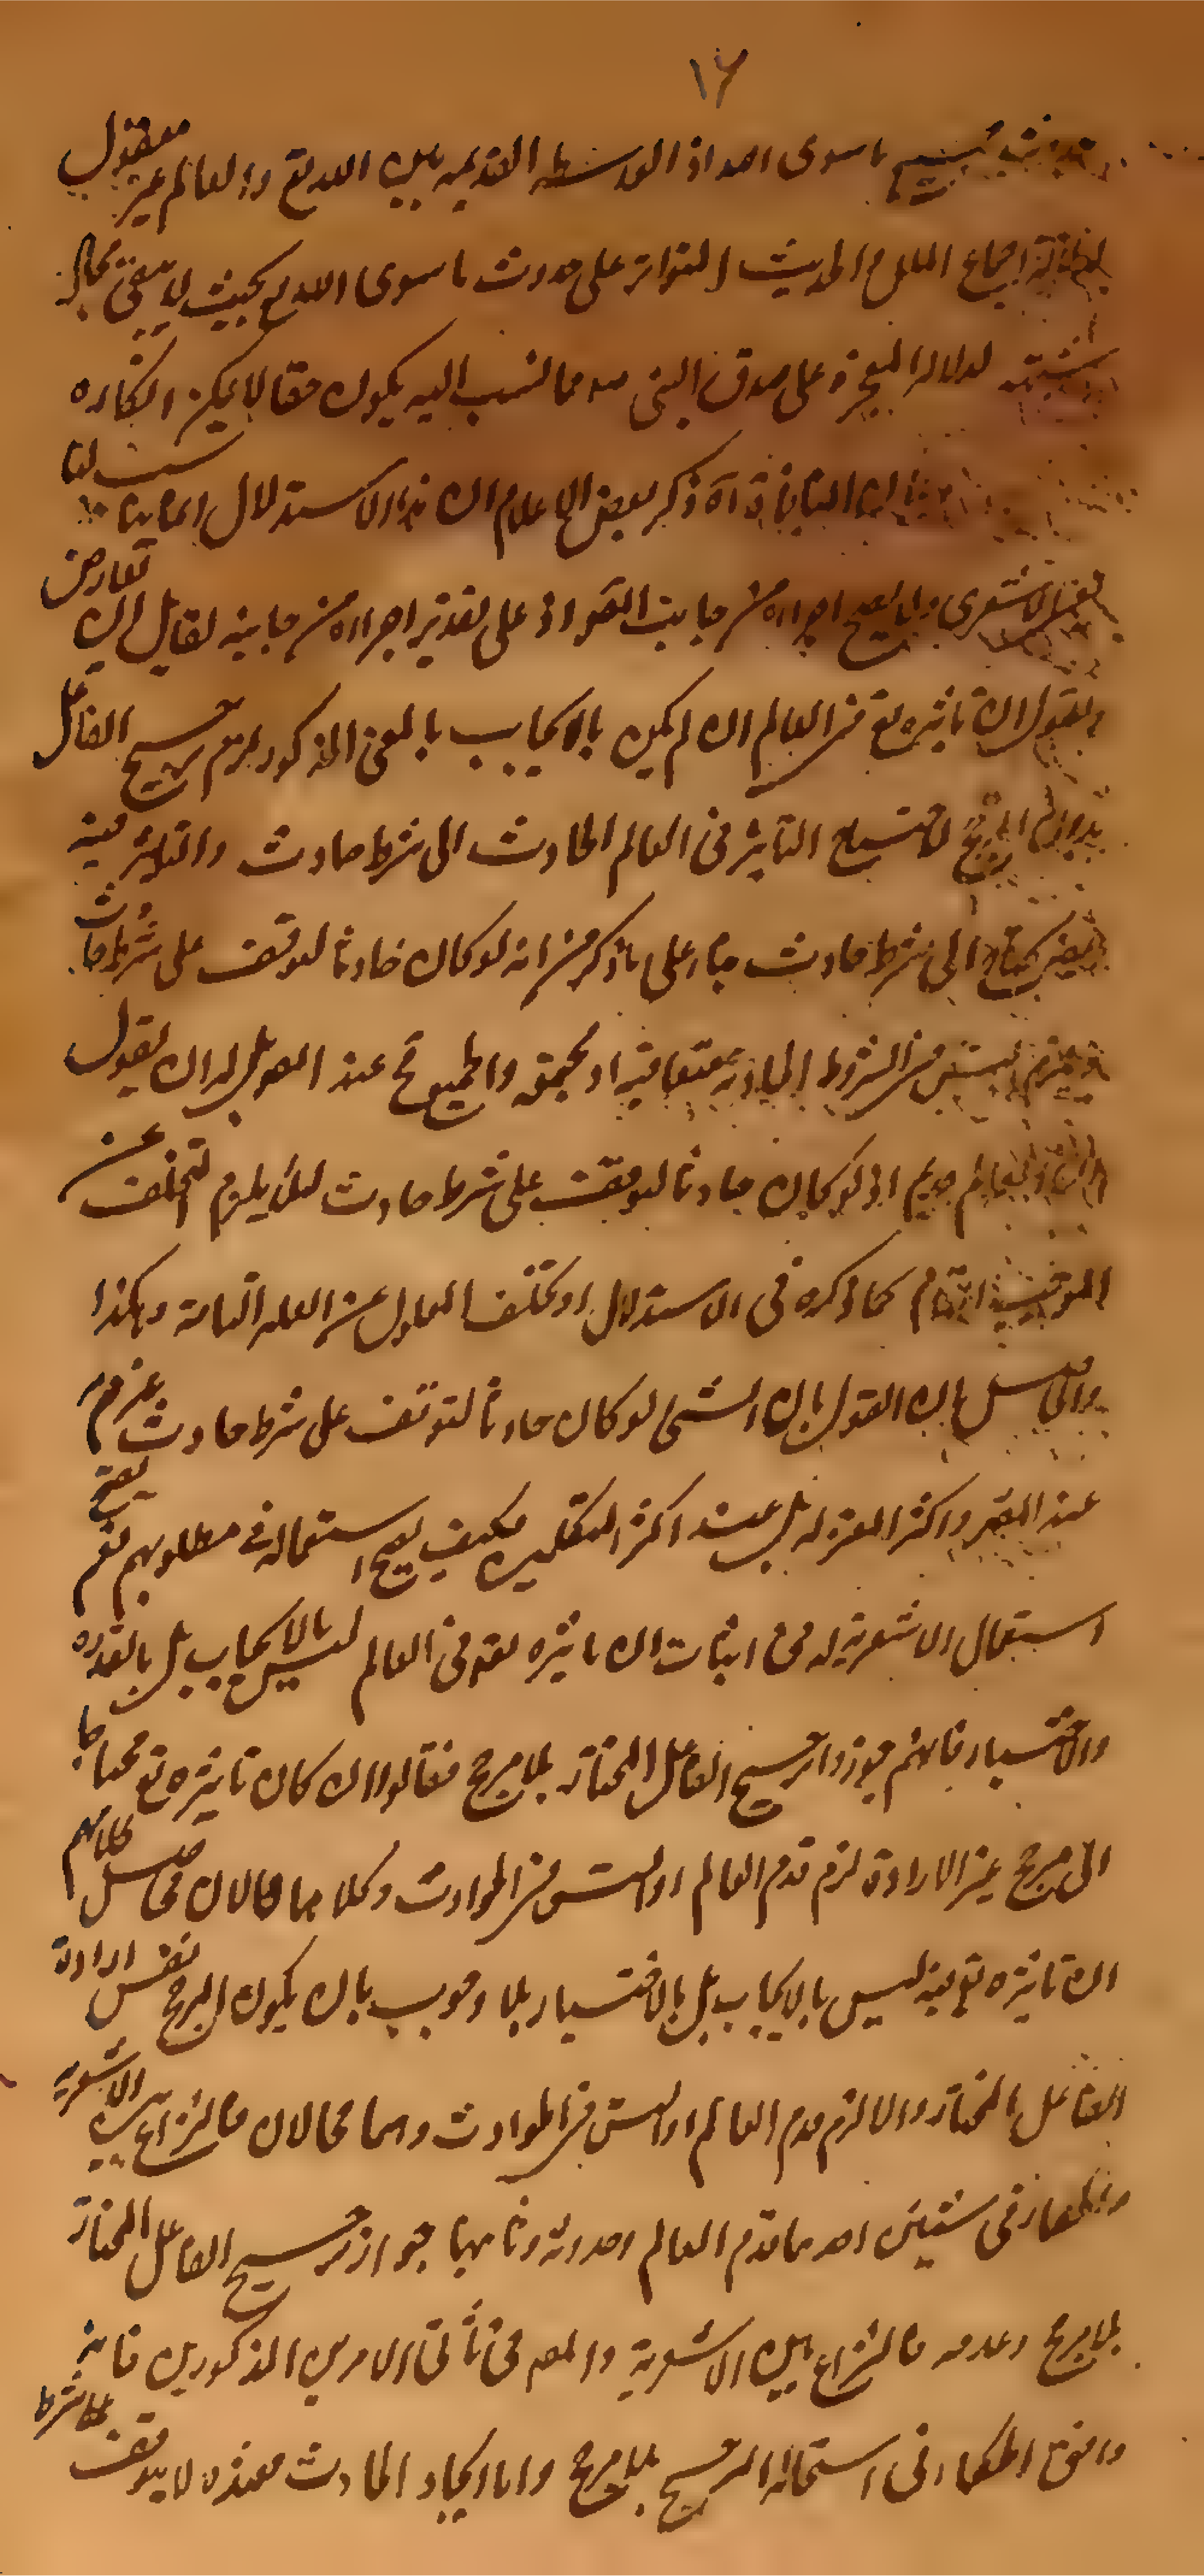 ١٦
جميع ما سوى الله اذ الواسطه القديمه بين الله تع والعالم غير معقول
اجماع الملل والحديث المتواتر على حدوث ما سوى الله تع بحيث لا يبقى مجال
لدلاله المعجزة على صدق النبى صم مما نسب اليه يكون حقا لا يمكن انكاره
آه ذكر بعض الاعلام ان هذا الاستدلال انما يناسب لنا
الاشعرى ولا يصح اجراءه من جانب القوم اذ على تقدير اجراءه من جانبه لقايل ان تعارض
ويقول ان تاثيره تع فى العالم ان لم يكن بالايجاب بالمعنى المذكور لزم ترجيح الفاعل
بدون المرجح لاحتياج التاثير فى العالم الحادث الى شرط حادث والتاثير فيه
يحتاج الى شرط حادث بناء على ما ذكر من انه لو كان حادثا لتوقف على شرط حادث
ويلزم التس فى الشروط الحادثة متعاقبة او مجتمعة والجميع مح عند المعتزله ان يقول
العالم قديم اذ لو كان حادثا لتوقف على شرط حادث لئلا يلزم التخلف عن
الموجب التام كما ذكره فى الاستدلال او تخلف المعلول عن العله التامة وهكذا
والحاصل ان القول بان الشئ لو كان حادثا لتوقف على شرط حادث غير تم
عند المص واكثر المعتزله بل عند اكثر المتكلمين فكيف يصح استعماله فى مطلوبهم نعم يصح
استعمال الاشعرية له فى اثبات ان تاثيره تع فى العالم ليس بالايجاب بل بالقدره
والاختيار فانهم جوزوا ترجيح الفاعل المختار بلا مرجح فقالوا ان كان تاثيره تع محتاجا
الى مرجح غير الارادة لزم قدم العالم او التس فى الحوادث وكلاهما محالان فحاصل كلامهم
ان تاثيره تع فيه ليس بالايجاب بل بالاختيار بلا وجوب بان يكون المرجح نفس ارادة
الفاعل المختار والا لزم قدم العالم او التس فى الحوادث وهما محالان فالنزاع بين الاشعرية
والحكماء فى شيئين احدهما قدم العالم وحدوثه وثانيهما جواز ترجيح الفاعل المختار
بلا مرجح وعدمه فالنزاع بين الاشعرية والمص فى ثانى الامرين المذكورين فانه
وافق الحكماء فى استحاله الترجيح بلا مرجح واما ايجاد الحادث فعنده لا يتوقف على شرط